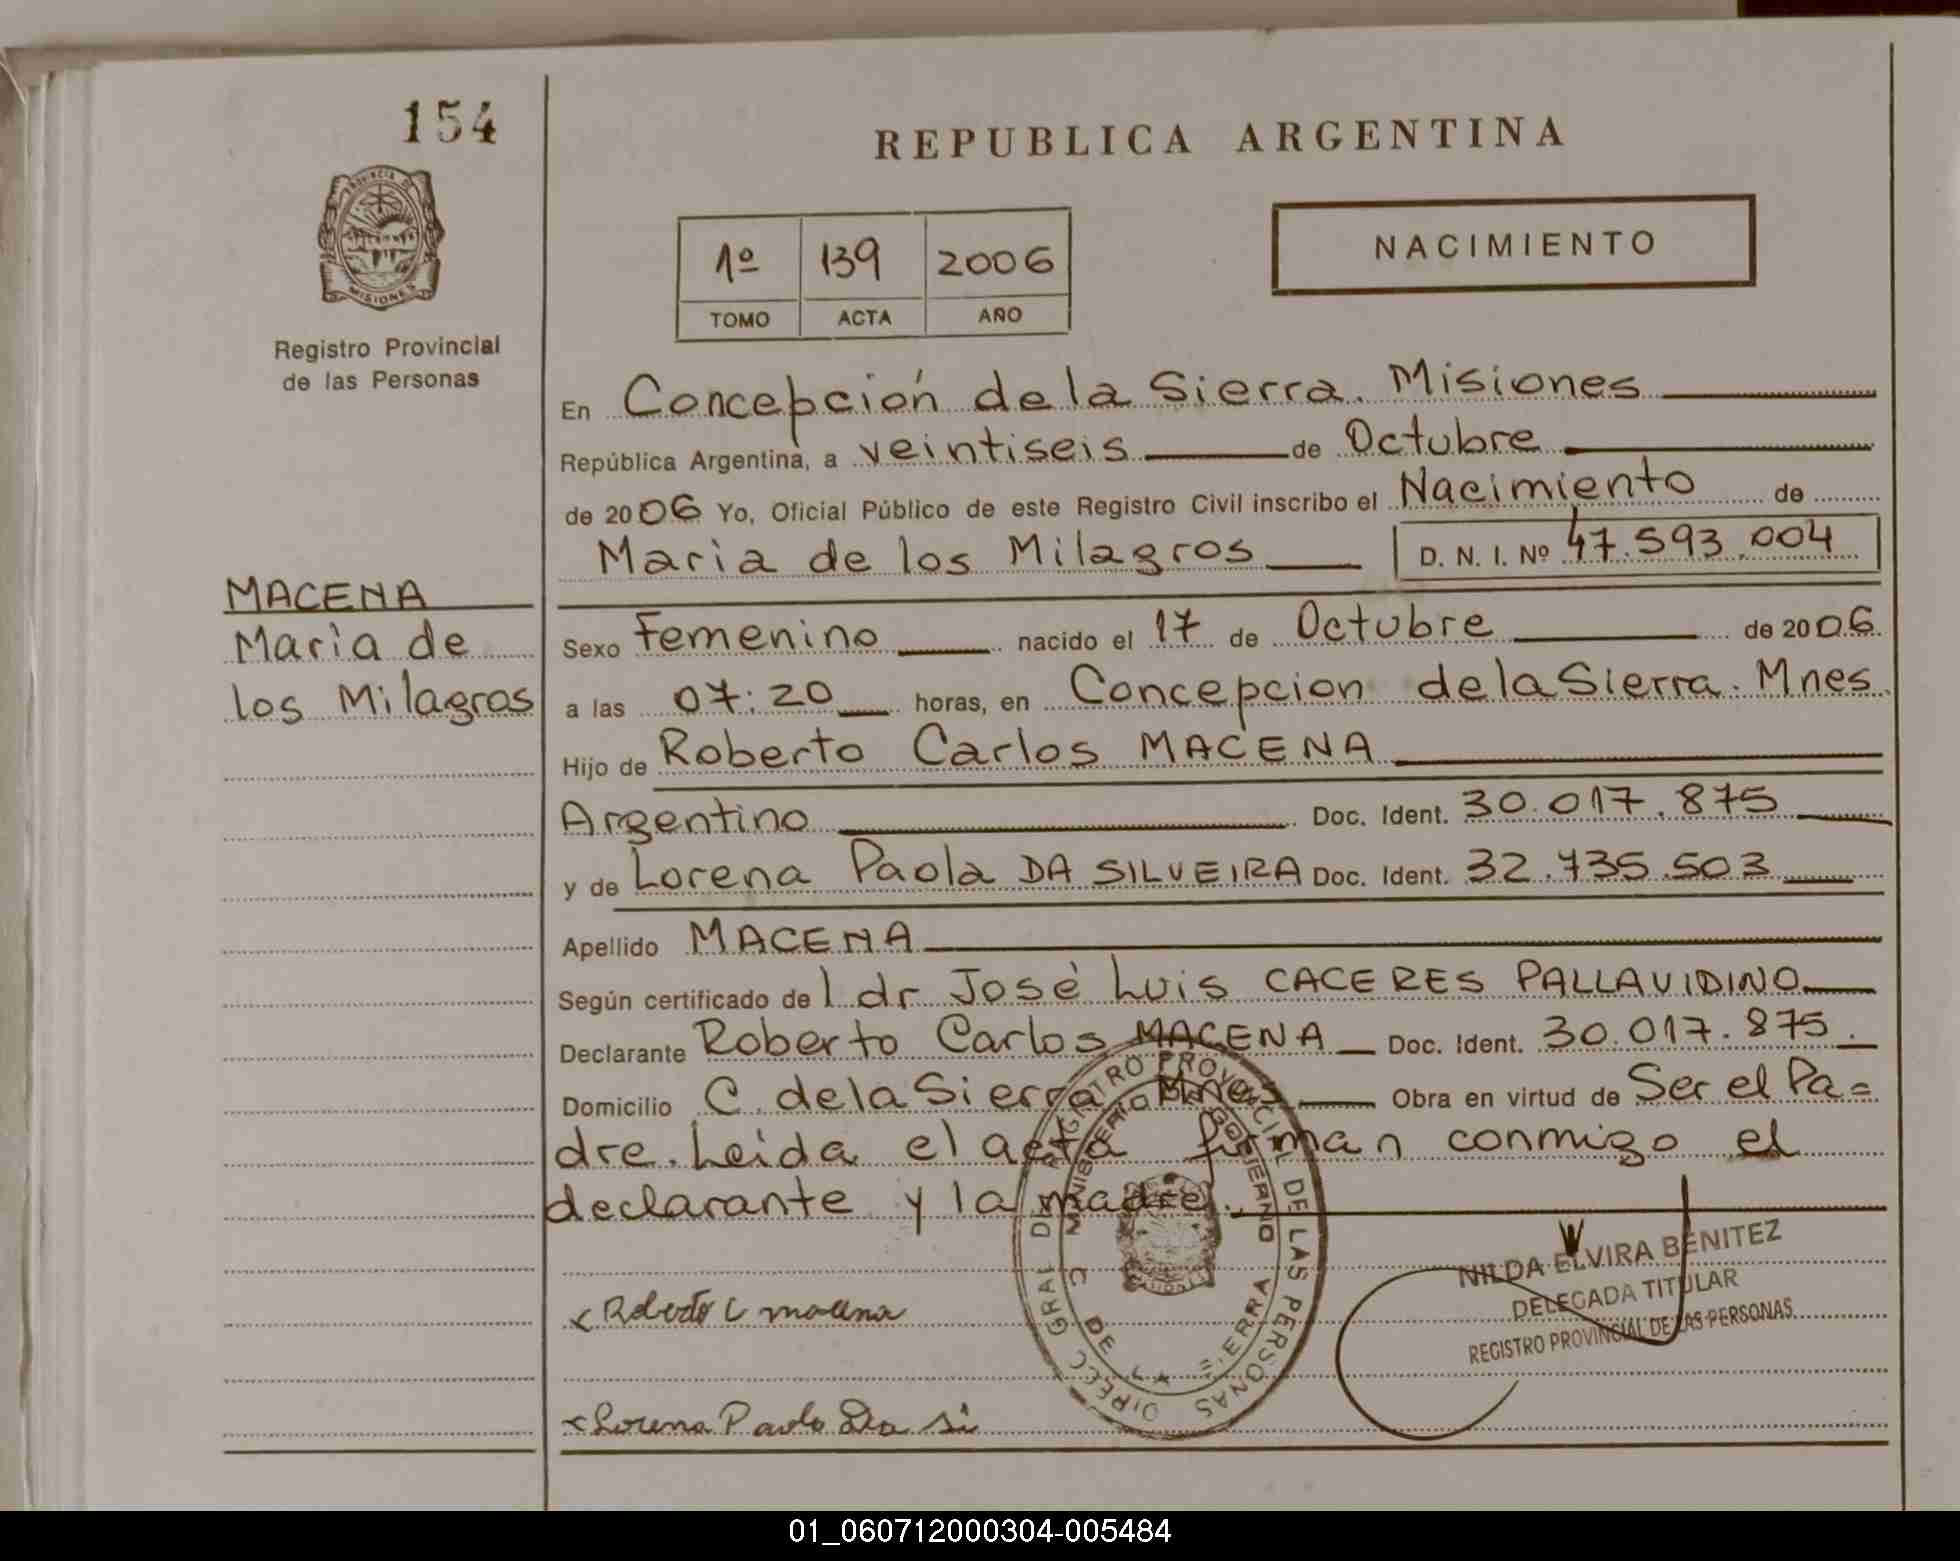 154
PROVINCIA DE
MISIONES
Registro Provincial
de las Personas
MACENA
Maria de
los Milagros
REPUBLICA ARGENTINA
1º 139 2006
TOMO ACTA AÑO
NACIMIENTO
En Concepción de la Sierra. Misiones
República Argentina, a veintiseis de Octubre
de 2006 Yo, Oficial Público de este Registro Civil inscribo el Nacimiento de
Maria de los Milagros D. N. I. Nº 47.593.004
Sexo Femenino nacido el 17 de Octubre de 2006.
a las 07:20 horas, en Concepcion de la Sierra. Mnes.
Hijo de Roberto Carlos MACENA
Argentino Doc. Ident. 30.017.875
y de Lorena Paola DA SILVEIRA Doc. Ident. 32.735.503
Apellido MACENA
Según certificado de l dr José Luis CACERES PALLAVIDINO
Declarante Roberto Carlos MACENA Doc. Ident. 30.017.875.
Domicilio C. de la Sierra Mnes Obra en virtud de Ser el Pa=
dre. Leida el acta firman conmigo el
declarante y la madre.
DIREC GRAL DE REGISTRO PROVINCIAL DE LAS PERSONAS
MINISTERIO DE GOBIERNO
C DE LA SIERRA
NILDA ELVIRA BENITEZ
DELEGADA TITULAR
REGISTRO PROVINCIAL DE LAS PERSONAS
Roberto C macena
Lorena Paola Da Si
01_060712000304-005484